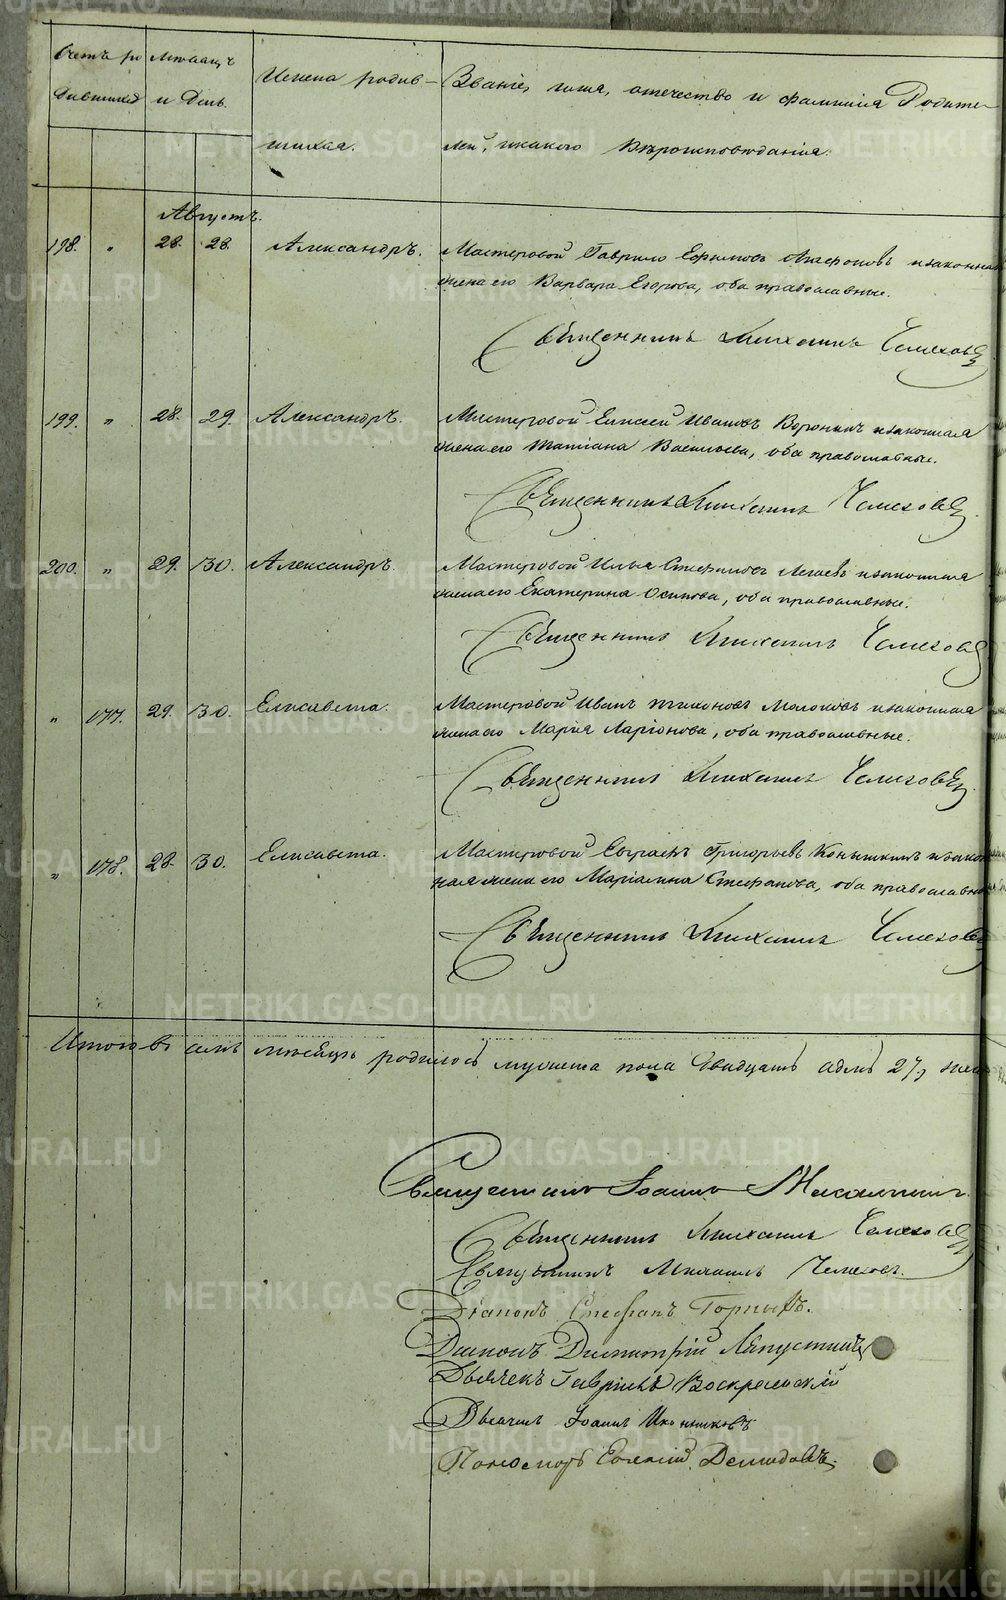 Счетъ ро Мѣсяцъ Имена родив- Званіе, имя, отечество и фамилія Родите-
дившихся и день. шихся. лей, и какого Вѣроисповѣданія.
Августъ.
198. " 28. 28. Александръ. Мастеровой Гаврило Ефимовъ и законная
жена его Варвара Егорова, оба православные.
Священникъ Михаилъ Чемезовъ
199. " 28. 29. Александръ. Мастеровой Елисей Ивановъ Воронинъ и законная
жена его Татіана Васильева, оба православные.
Священникъ Михаилъ Чемезовъ
200. " 29. 30. Александръ. Мастеровой Илья и законная
жена его Екатерина Осипова, оба православные.
Священникъ Михаилъ Чемезовъ
" 177. 29. 30. Елисавета. Мастеровой Иванъ Тихоновъ Молоковъ и законная
жена его Марія Ларіонова, оба православные.
Священникъ Михаилъ Чемезовъ
" 178. 28. 30. Елисавета. Мастеровой Григорьевъ Конышинъ и закон
ная жена его Маріамна Стефанова, оба православные
Священникъ Михаилъ Чемезовъ
Итого въ семъ мѣсяцѣ родилось мужеска пола двадцать 27,
Священникъ Іоаннъ
Священникъ Михаилъ Чемезовъ
Священникъ Михаилъ Чемезовъ.
Діаконъ Стефанъ
Діаконъ Димитрій Ляпустинъ
Дьячекъ Гавріилъ Воскресенскій
Дьячекъ Іоаннъ Иконниковъ
Пономарь Евгеній Демидовъ.
METRIKI.GASO-URAL.RU